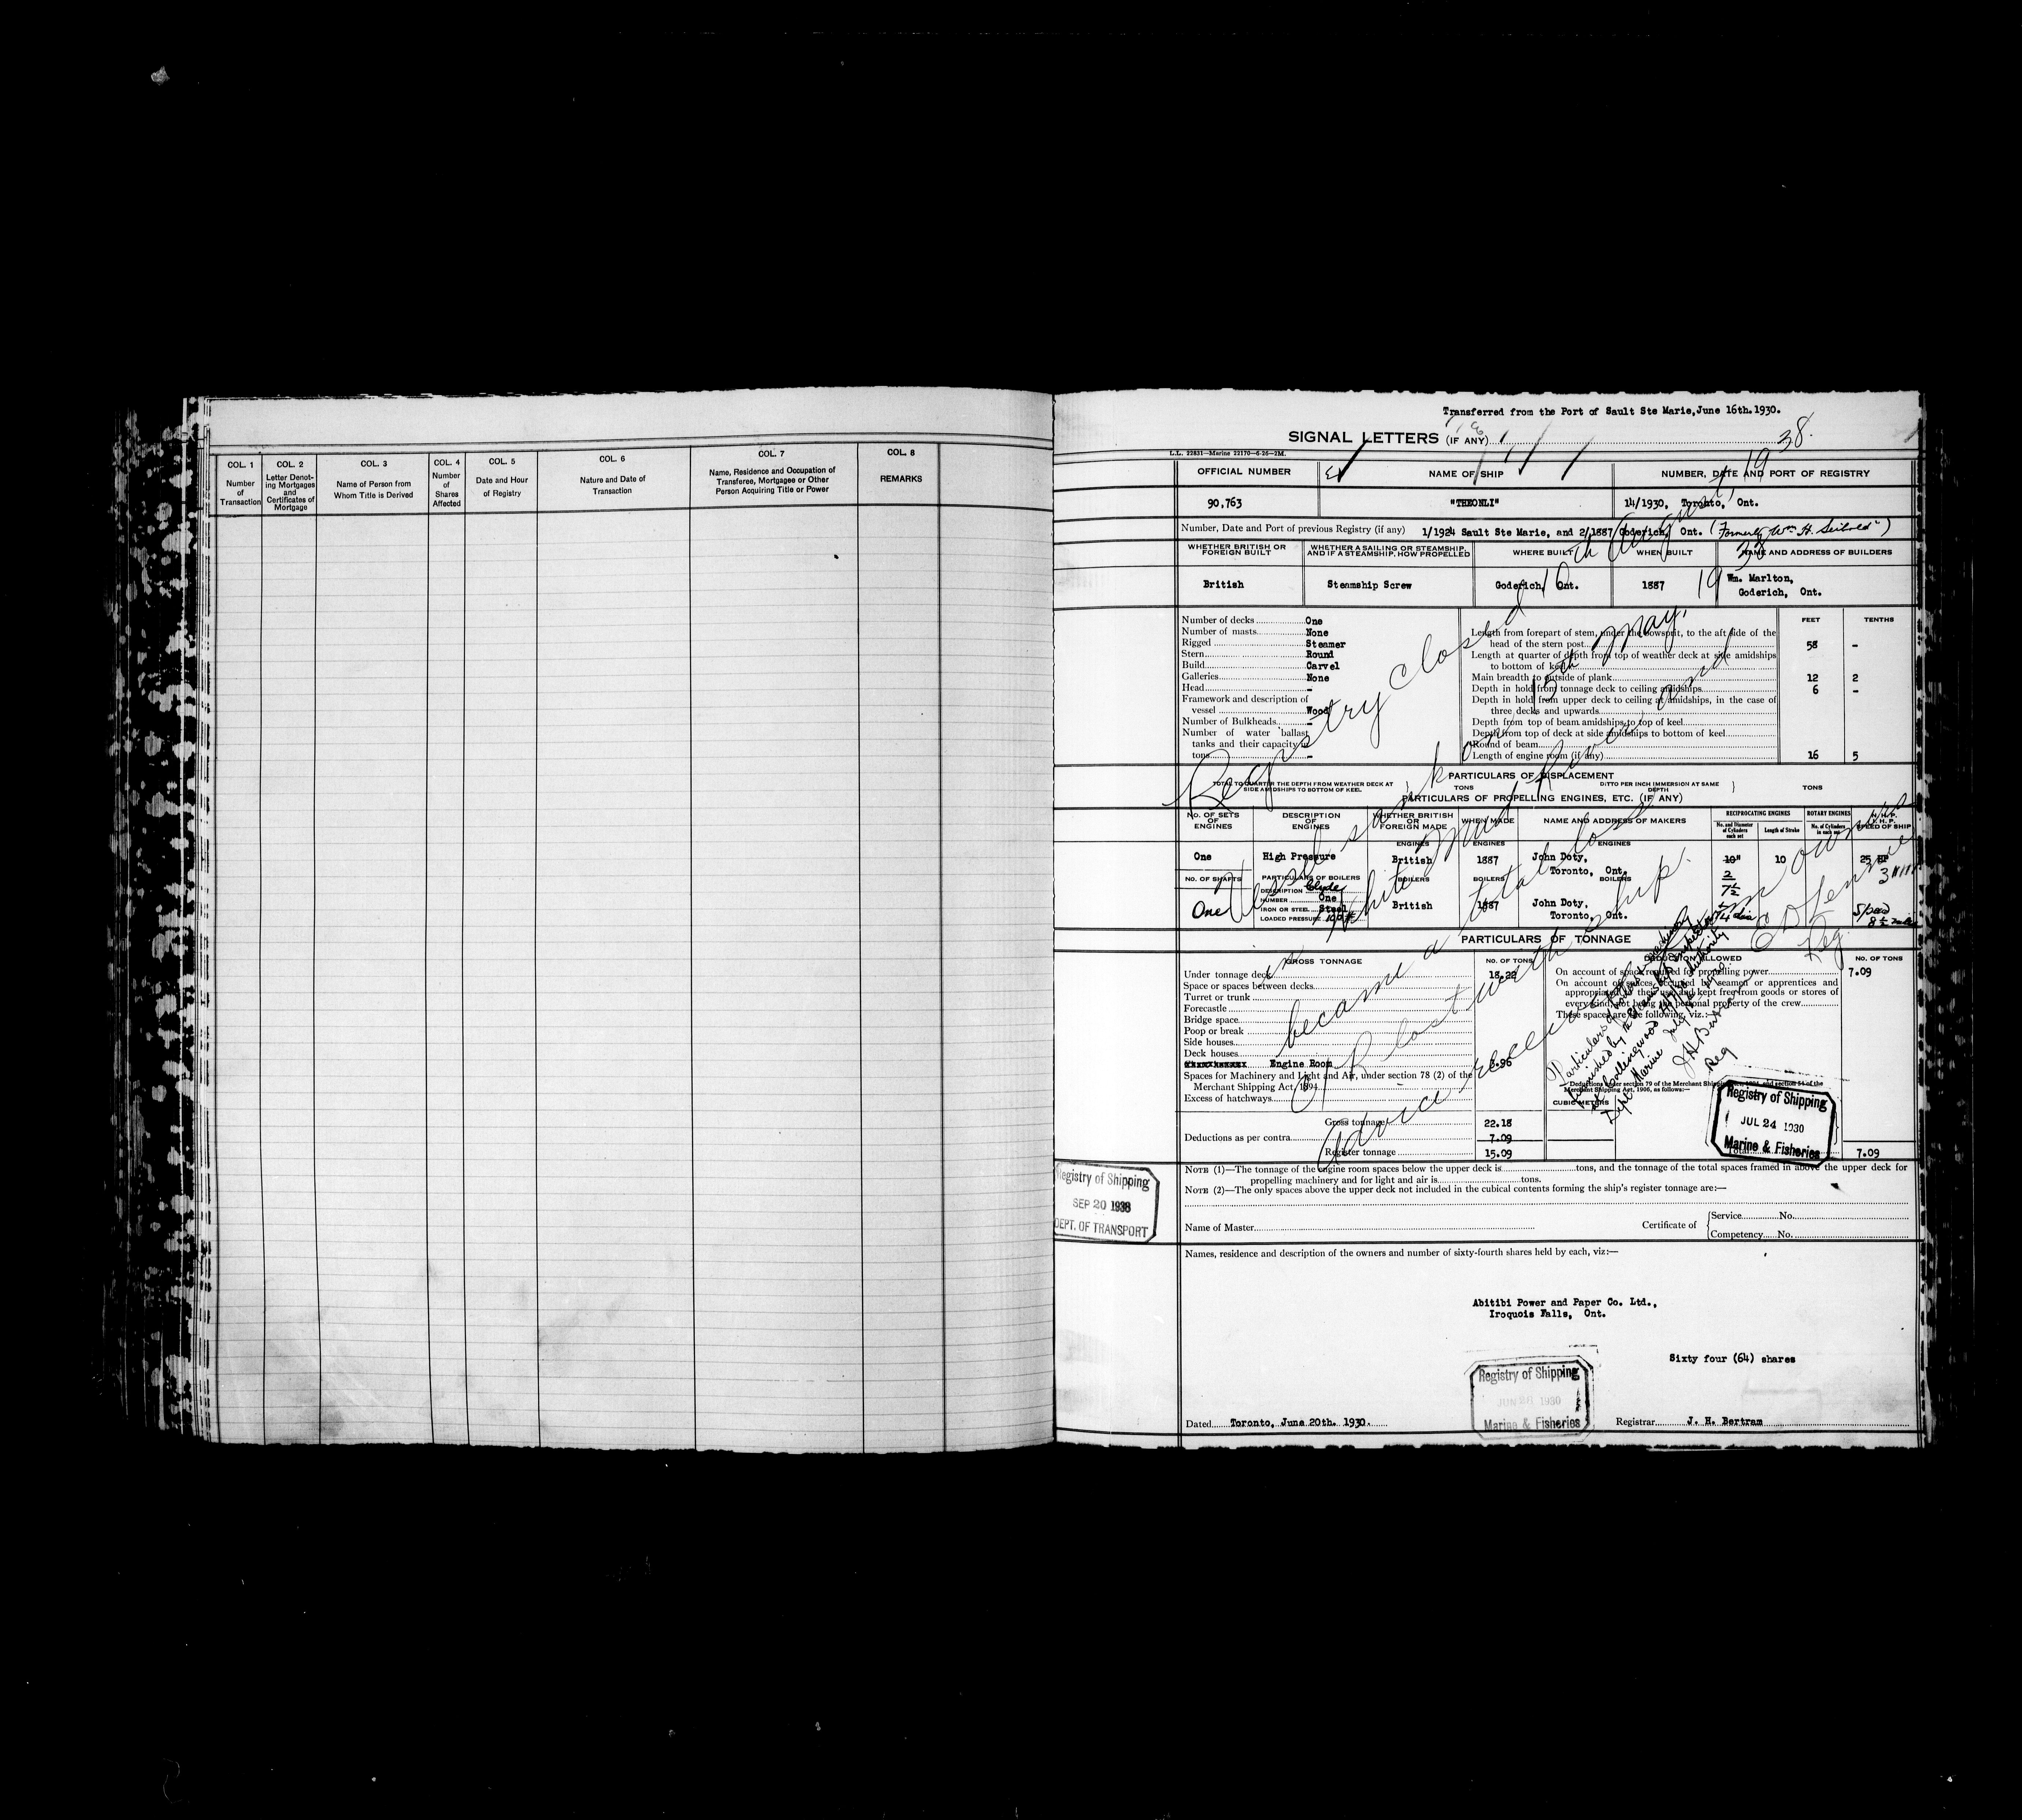 COL. 1
Number
of
Transaction
COL. 2
Letter Denot-
ing Mortgages
and
Certificates of
Mortgage
COL. 3
Name of Person from
Whom Title is Derived
COL. 4
Number
of
Shares
Affected
COL. 5
Date and Hour
of Registry
COL. 6
Nature and Date of
Transaction
COL. 7
Name, Residence and Occupation of
Transferee, Mortgagee or Other
Person Acquiring Title or Power
COL. 8
REMARKS
Transferred from the Port of Sault Ste Marie, June 16th. 1930.
SIGNAL LETTERS (IF ANY)
L.L. 22831—Marine 22170—6-26—2M.
OFFICIAL NUMBER NAME OF SHIP NUMBER, DATE AND PORT OF REGISTRY
90,763 "THEONLI" 14/1930, Toronto, Ont.
Number, Date and Port of previous Registry (if any) 1/1924 Sault Ste Marie, and 2/1887 Goderich, Ont. (Formerly "Wm. H. Seibold")
WHETHER BRITISH OR FOREIGN BUILT
WHETHER A SAILING OR STEAMSHIP, AND IF A STEAMSHIP, HOW PROPELLED
WHERE BUILT
WHEN BUILT
NAME AND ADDRESS OF BUILDERS
British Steamship Screw Goderich, Ont. 1887 Wm. Marlton,
Goderich, Ont.
Number of decks One
Number of masts None
Rigged Steamer
Stern Round
Build Carvel
Galleries None
Head -
Framework and description of
vessel Wood
Number of Bulkheads -
Number of water ballast
tanks and their capacity in
tons -
FEET TENTHS
Length from forepart of stem, under the bowsprit, to the aft side of the
head of the stern post 58 -
Length at quarter of depth from top of weather deck at side amidships
to bottom of keel
Main breadth to outside of plank 12 2
Depth in hold from tonnage deck to ceiling amidships 6 -
Depth in hold from upper deck to ceiling at amidships, in the case of
three decks and upwards
Depth from top of beam amidships to top of keel
Depth from top of deck at side amidships to bottom of keel
Round of beam
Length of engine room (if any) 16 5
PARTICULARS OF DISPLACEMENT
TOTAL TO QUARTER THE DEPTH FROM WEATHER DECK AT
SIDE AMIDSHIPS TO BOTTOM OF KEEL
TONS
DITTO PER INCH IMMERSION AT SAME
DEPTH
TONS
PARTICULARS OF PROPELLING ENGINES, ETC. (IF ANY)
NO. OF SETS OF ENGINES
DESCRIPTION OF ENGINES
WHETHER BRITISH OR FOREIGN MADE
WHEN MADE
NAME AND ADDRESS OF MAKERS
RECIPROCATING ENGINES
No. and Diameter of Cylinders each set
Length of Stroke
ROTARY ENGINES
No. of Cylinders in each set
SPEED OF SHIP
ENGINES ENGINES ENGINES
One High Pressure British 1887 John Doty,
Toronto, Ont.
10" 10 25
2
7½
NO. OF SHAFTS PARTICULARS OF BOILERS BOILERS BOILERS BOILERS
One
DESCRIPTION Clyde
NUMBER One
IRON OR STEEL Steel
LOADED PRESSURE 100#
British 1887 John Doty,
Toronto, Ont.
Speed
8½ miles
PARTICULARS OF TONNAGE
GROSS TONNAGE NO. OF TONS
Under tonnage deck 18.22
Space or spaces between decks
Turret or trunk
Forecastle
Bridge space
Poop or break
Side houses
Deck houses
Engine Room 3.96
Spaces for Machinery and Light and Air, under section 78 (2) of the
Merchant Shipping Act, 1894
Excess of hatchways
Gross tonnage 22.18
Deductions as per contra 7.09
Register tonnage 15.09
DEDUCTION ALLOWED NO. OF TONS
On account of space required for propelling power 7.09
On account of spaces occupied by seamen or apprentices and
appropriated to their use, and kept free from goods or stores of
every kind, not being the personal property of the crew
These spaces are the following, viz.:—
Deductions under section 79 of the Merchant Shipping Act, 1894, and section 54 of the
Merchant Shipping Act, 1906, as follows:—
CUBIC METERS
Total 7.09
Registry closed 10th August, 1938
Vessel sank on 15th May, 1938
in White Mud River and
became a total loss
C/R lost with ship.
Advice received from owner
Reg
Particulars of boiler & machinery
furnished by Steamship Inspector
at Collingwood
Dept Marine July
J H Bertram
Reg
Registry of Shipping
JUL 24 1930
Marine & Fisheries
Registry of Shipping
SEP 20 1938
DEPT. OF TRANSPORT
NOTE (1)—The tonnage of the engine room spaces below the upper deck is tons, and the tonnage of the total spaces framed in above the upper deck for
propelling machinery and for light and air is tons.
NOTE (2)—The only spaces above the upper deck not included in the cubical contents forming the ship's register tonnage are:—
Name of Master Certificate of Service No.
Competency No.
Names, residence and description of the owners and number of sixty-fourth shares held by each, viz:—
Abitibi Power and Paper Co. Ltd.,
Iroquois Falls, Ont.
Sixty four (64) shares
Registry of Shipping
JUN 28 1930
Marine & Fisheries
Dated Toronto, June 20th. 1930. Registrar J. H. Bertram